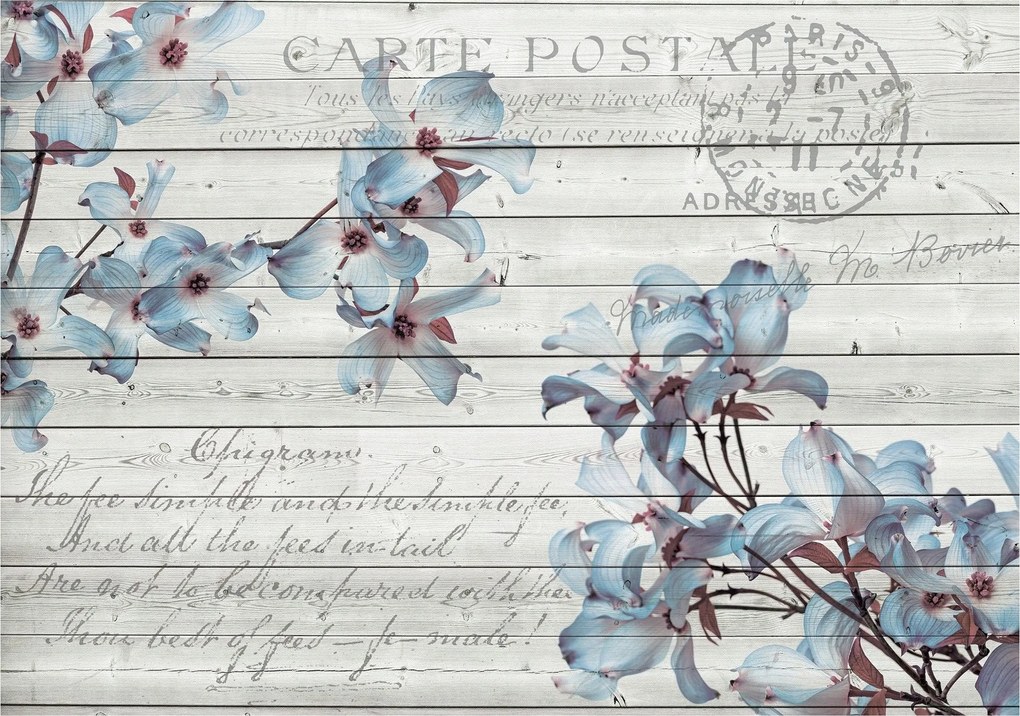 CARTE POSTALE
Tous les Pays étrangers n'acceptant pas la
correspondance au recto (se renseigner à la poste)
PARIS
ADRESSE
Mademoiselle M. Bovier
Epigram.
The fee simple and the simple fee,
And all the fees in tail
Are not to be compared with thee
Thou best of fees – fe-male!